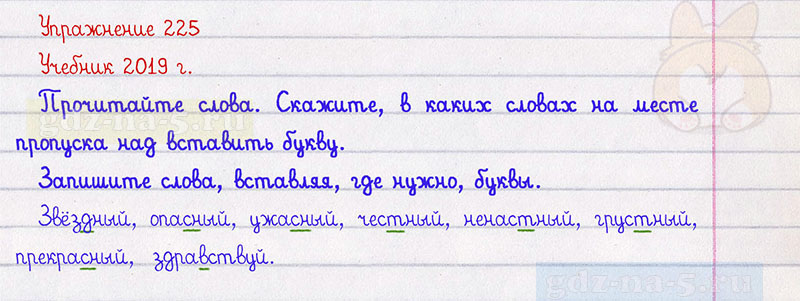 Упражнение 225
Учебник 2019 г.
Прочитайте слова. Скажите, в каких словах на месте
пропуска над вставить букву.
Запишите слова, вставляя, где нужно, буквы.
Звёздный, опасный, ужасный, честный, ненастный, грустный,
прекрасный, здравствуй.
gdz-na-5.ru
gdz-na-5.ru